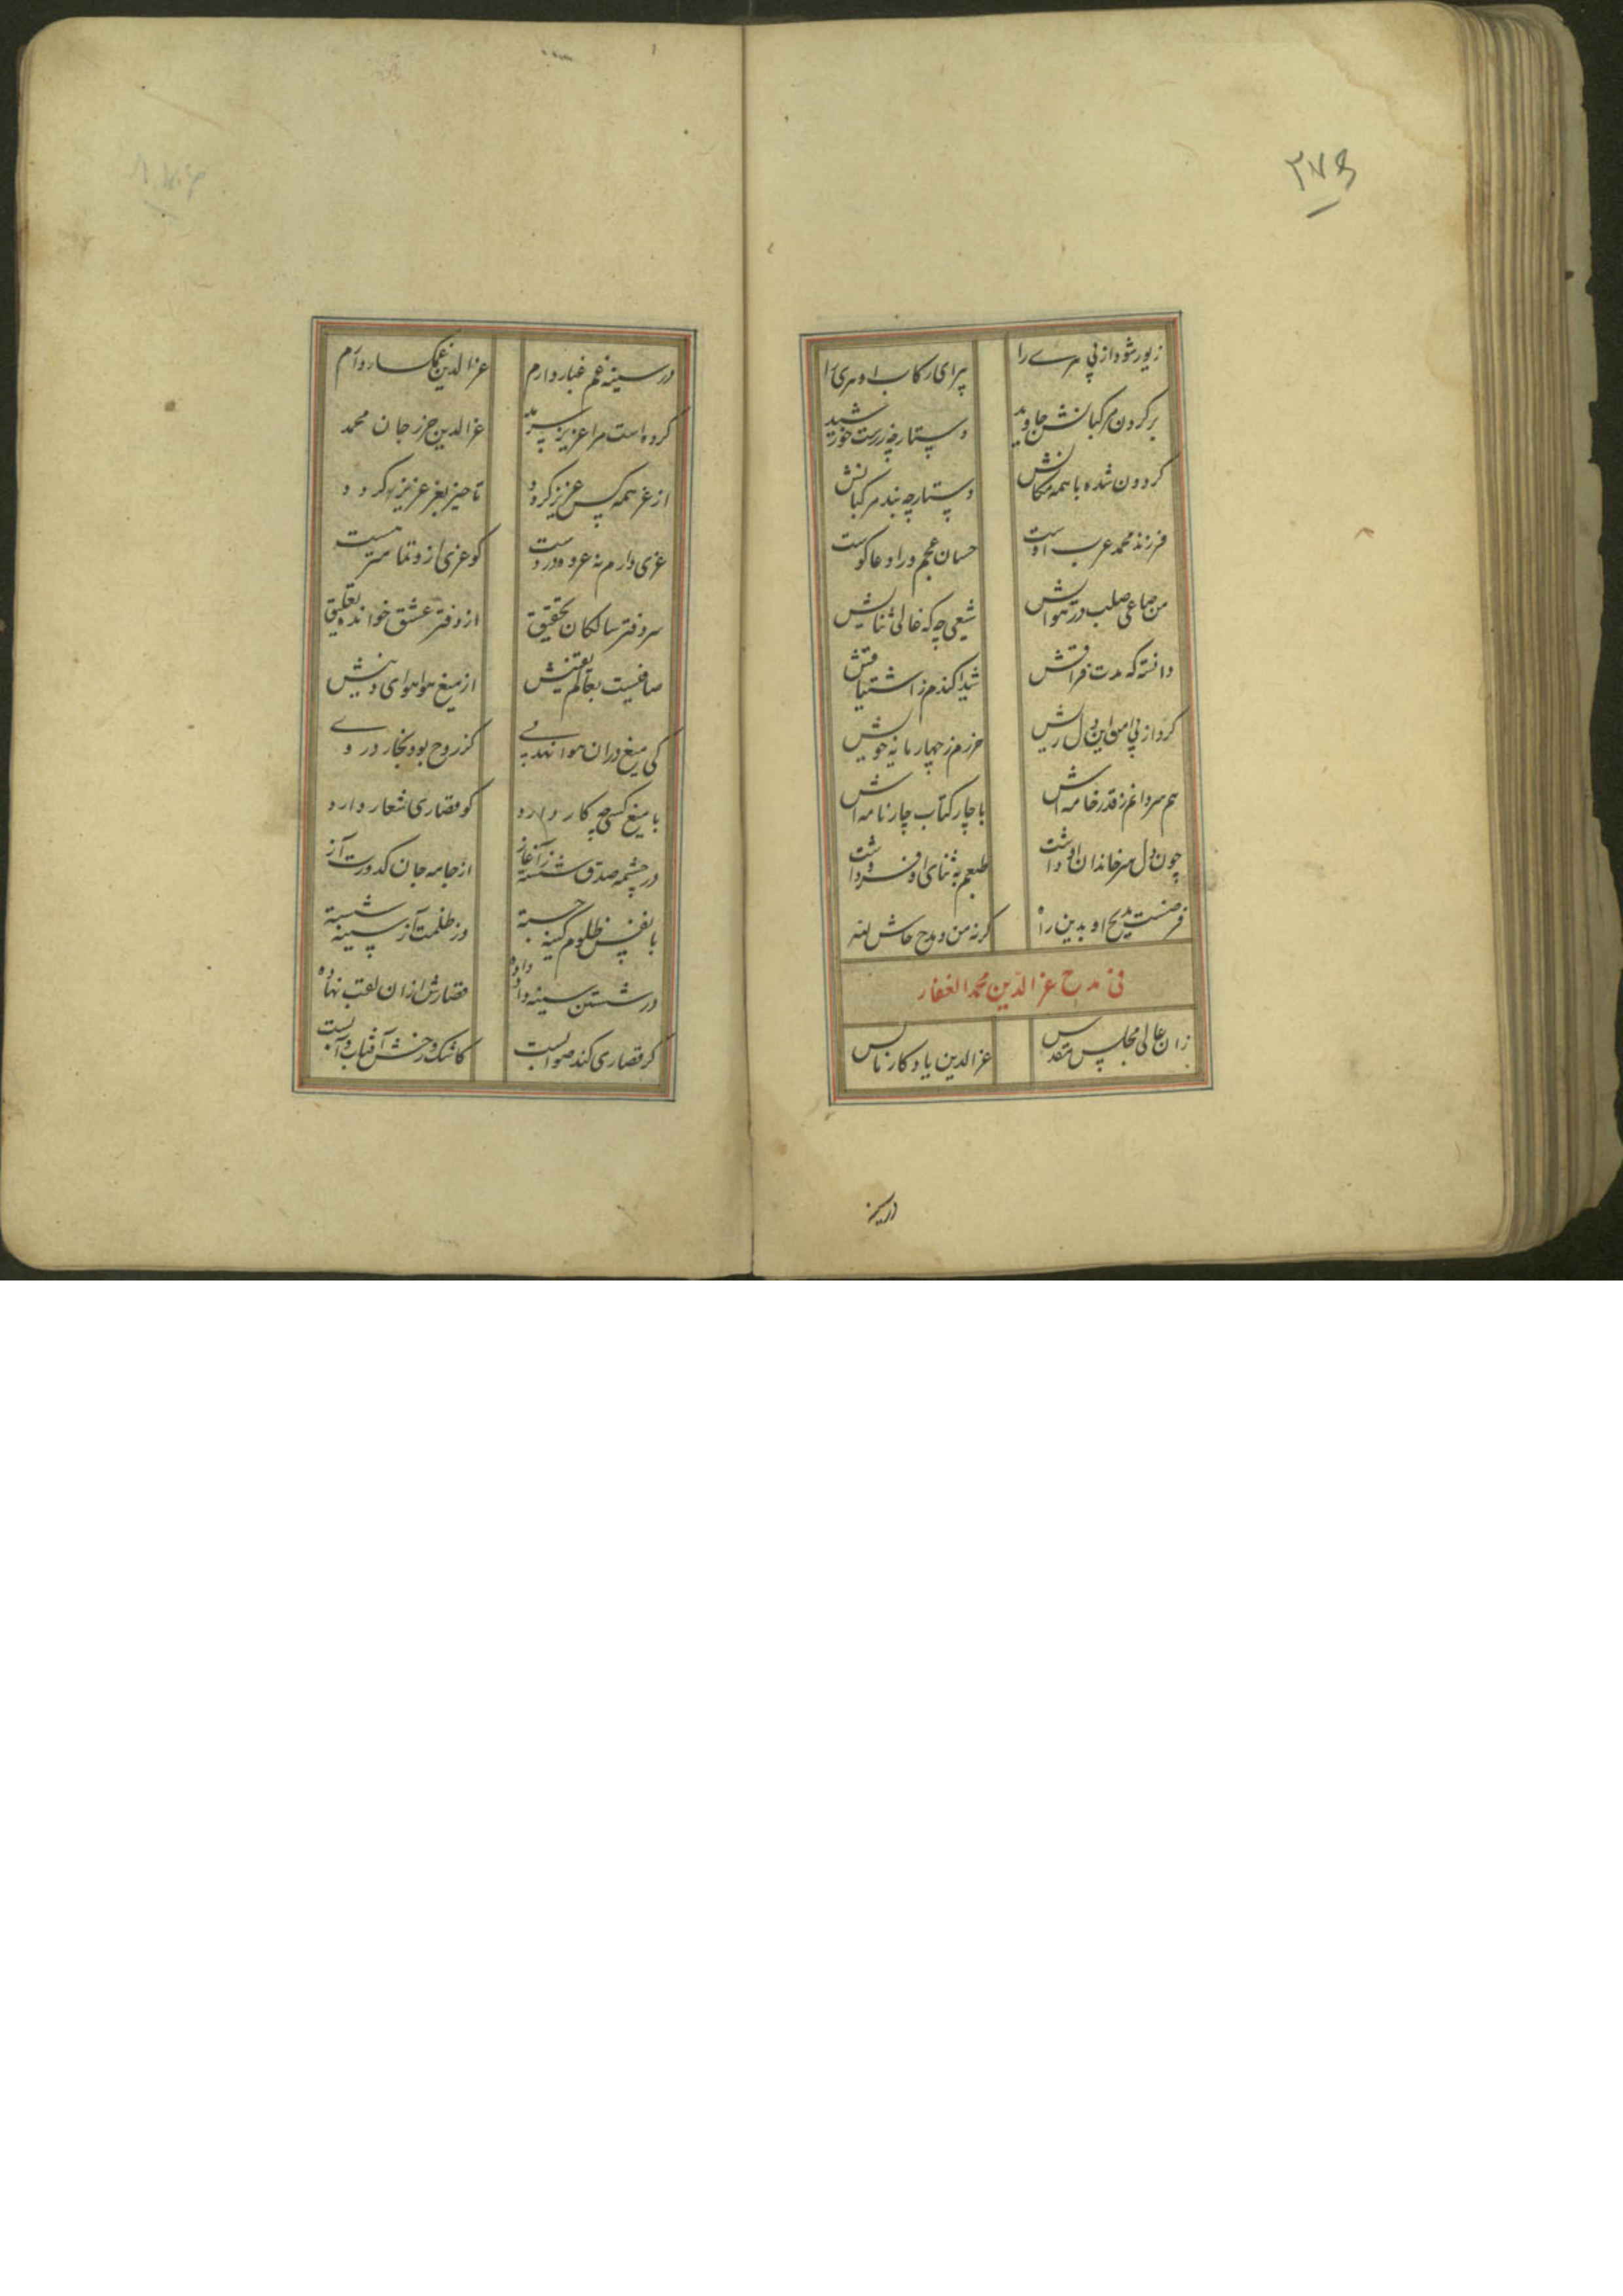 ۳۷۵
زیور شود از پی سرے را
پیرای رکاب او سری را
بر کردن مرکبانش جاوید
دستارچه زرست خورشید
کردون شده با همه مکانش
دستارچه بند مرکبانش
فرزند محمد عرب اوست
حسان عجم ورا دعا کوست
من صاعی صلب در هواش
شیعی چه که غالی ثنایش
دانسته که مدت فراقش
شیدا کندم ز اشتیاقش
کرد از پی من این دل ریش
حرزم ز چهار مایه خویش
هم سر دانم ز قدر خامه اش
با چار کتاب چار نامه اش
چون دل سر خاندان او داشت
طبعم به ثنای او فرو داشت
فرضست مدیح او بدین راه
کرنه من و مدح حاش لله
فی مدح عز الدین محمد الغفار
زان عالی مجلس مقدس
عزالدین یادکار ناس
در سینه
در سینه غم غبار دارم
عزالدین غمکسار دارم
کرده است مرا عزیز سرمد
عزالدین حرز جان محمد
از عز همه کس عزیز کردد
تا حیز بغز عزیز کردد
عزی دارم نه عز ده دروست
کو عزی از و تما سریست
سر دفتر سالکان تحقیق
از دفتر عشق خوانده تعلیق
صافیست بعالم یقینش
از میغ هوا هوای دینش
کی میغ دران هوا نهد پے
کز روح بود بخار در وے
با میغ کسی چه کار دارد
کو قصاری شعار دارد
در چشمه صدق شسته ز آغاز
از جامه جان کدورت آز
با نفس ظلوم کینه جسته
وز ظلمت آز سینه شسته
در شستن سینه داد داده
قصارش ازان لقب نهاده
کر قصاری کند صوابست
کاشک و رخش آفتاب و آبست